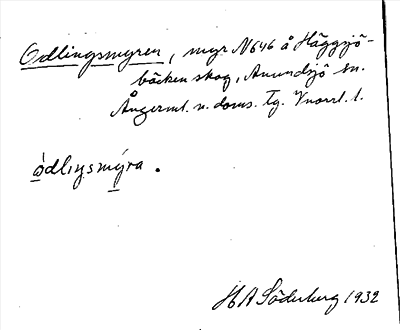 Odlingsmyren, myr N646 å Häggsjö-
bäcken skog, Anundsjö sn.
Ångerml. n. doms. Tg. Vnorrl. l.
òdlıŋsmýra.
H A Söderberg 1932